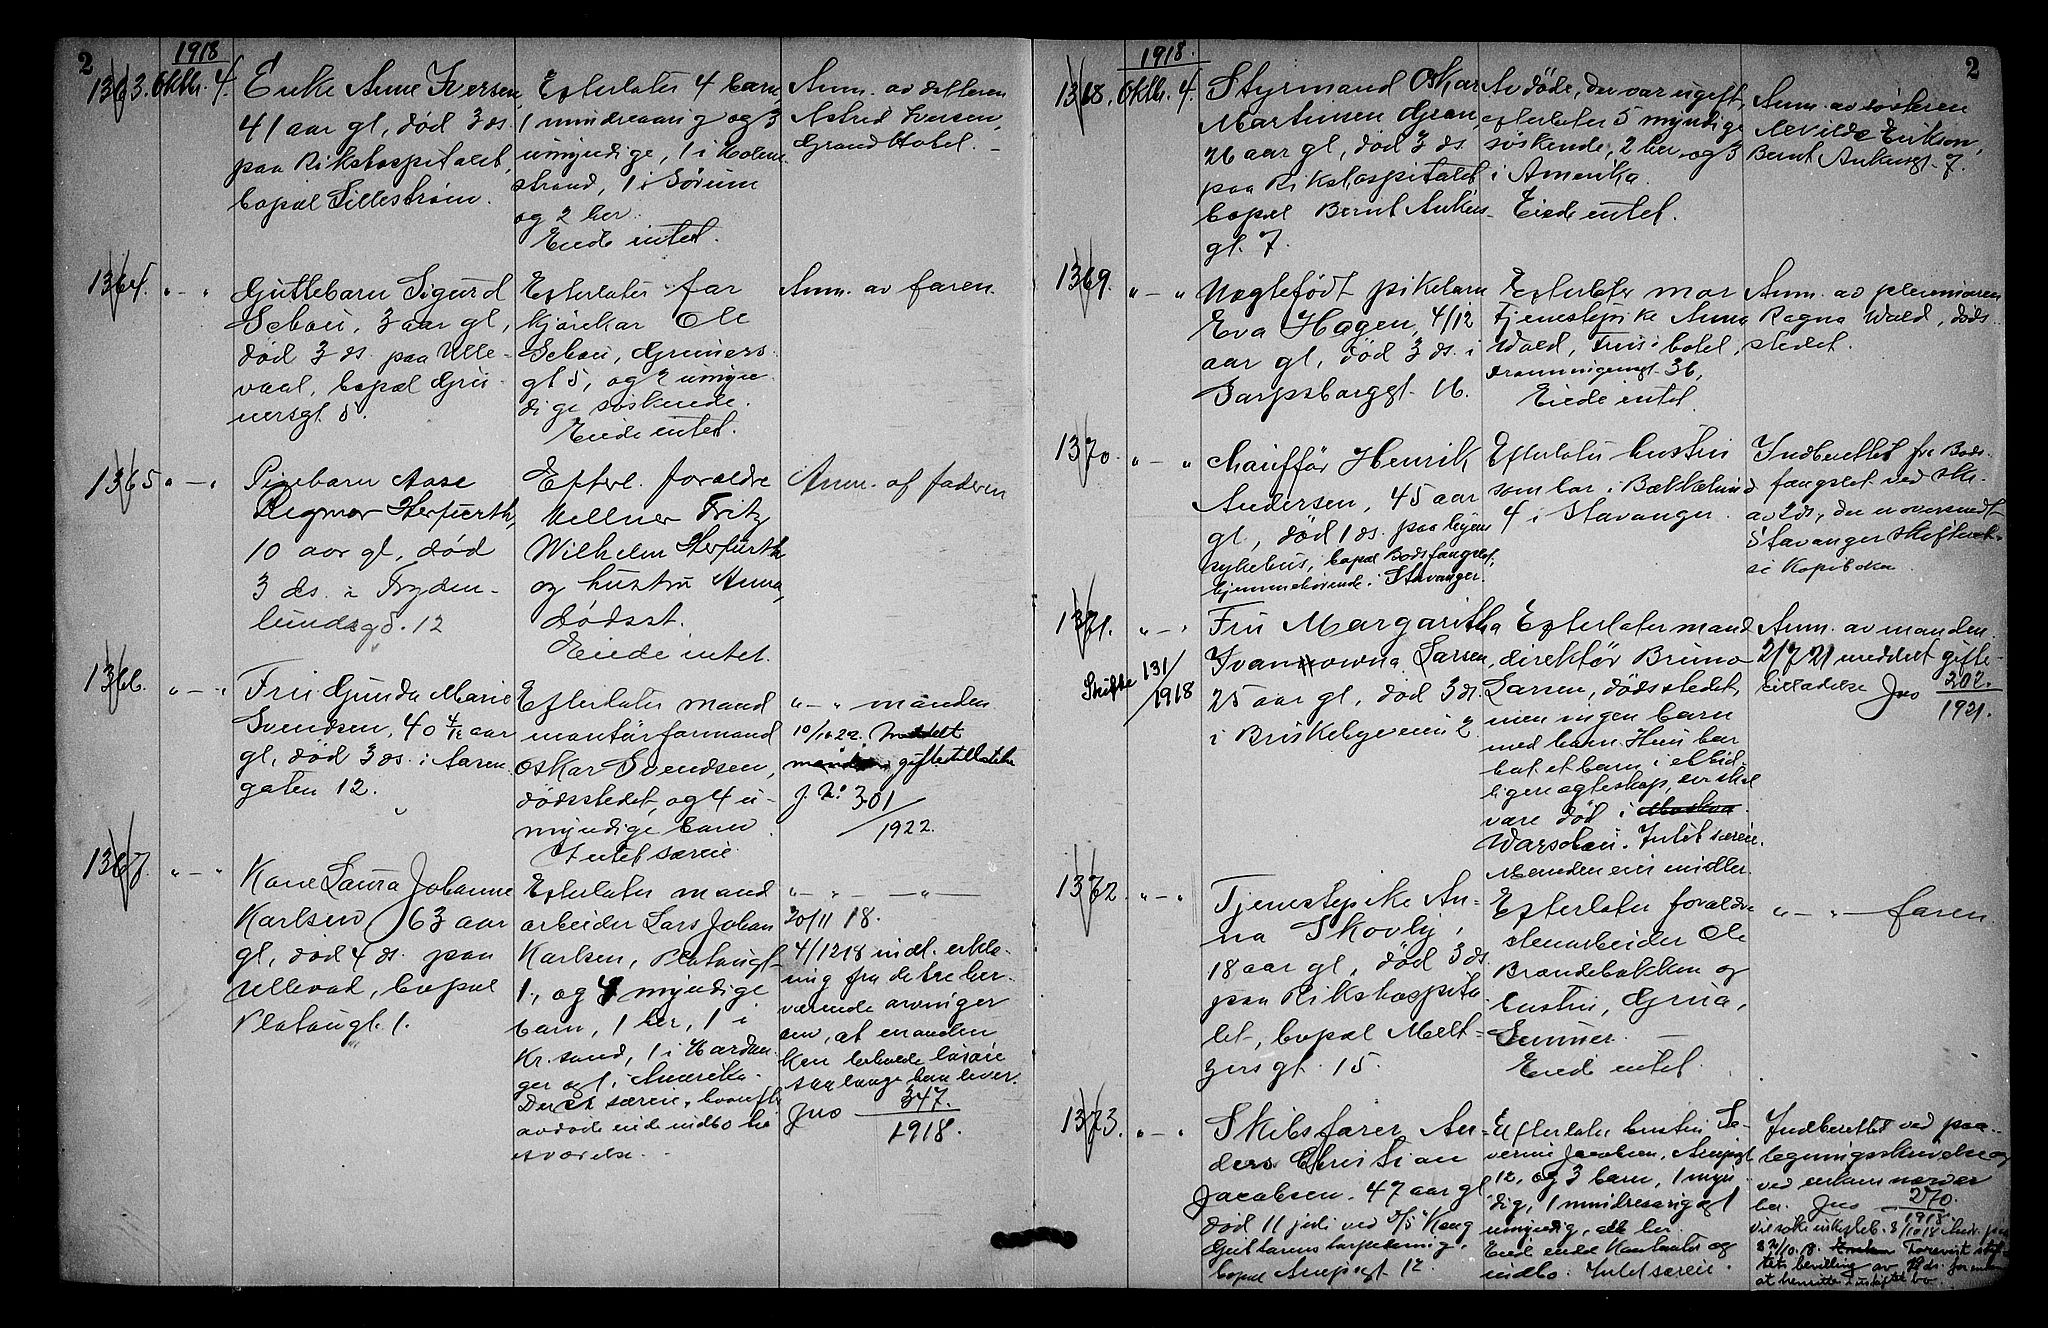 2
1918
1363. Oktbr. 4.
Enke Anne Iversen,
41 aar gl, død 3 ds.
paa Rikshospitalet,
bopæl Lillestrøm.
Efterlater 4 barn,
1 mindreaarig og 3
umyndige, 1 i Holme-
strand, 1 i Sørum
og 2 her.
Eiede intet.
Anm. av datteren
Astrid Iversen,
Grand Hotel. –
1364. " – "
Guttebarn Sigurd
Schou, 3 aar gl,
død 3 ds. paa Ulle-
vaal, bopæl Grü-
nersgt. 5.
Efterlater far
kjørekar Ole
Schou, Grüners
gt 5, og 2 umyn-
dige søskende.
Eiede intet.
Anm. av faren.
1365 " – "
Pigebarn Aase
Dagmar Herfurth,
10 aar gl, død
3 ds. i Fryden-
lundsgd. 12
Efterl. foraldre
Kellner Fritz
Wilhelm Herfurth
og hustru Anna,
dødsst.
Eiede intet.
Anm. af faderen
1366. " – "
Fru Gunda Marie
Svendsen, 40 4/12 aar
gl, død 3 ds. i Aaren
gaten 12.
Efterlater mand
montørformand
Oskar Svendsen,
dødsstedet, og 4 u-
myndige barn.
Intet særeie.
" – " manden
10/10 22. Meddelt
manden giftetillatelse
J. No 301/
1922.
1367. " – "
Kone Laura Johanne
Karlsen, 63 aar
gl, død 4 ds. paa
Ullevål, bopæl
Platougt. 1.
Efterlater mand
arbeider Lars Johan
Karlsen, Platougt.
1, og 4 myndige
barn, 1 her, 1 i
Kr.sand, 1 i Hardan-
ger og 1 i Amerika.
Der er særeie, hvorefter
avdøde eiede indbo
" – " – " –
30/11 18.
4/12 18 indl. erklæ-
ring fra de tre her-
værende arvinger
om, at manden
kan beholde
saalænge han lever.
Jno 347.
1918.
1918.
2
1368. Oktbr. 4.
Styrmand Oskar
Martinsen Gran,
26 aar gl, død 3 ds.
paa Rikshospitalet
bopæl Bernt Ankers
gt. 7.
Avdøde, der var ugift,
efterlater 5 myndige
søskende, 2 her og 3
i Amerika.
Eiede intet.
Anm. av søsteren
Alvilde Erikson,
Bernt Ankersgt. 7.
1369. " – "
Uegtefødt pikebarn
Eva Hagen, 4/12
aar gl, død 3 ds. i
Sarpsborggt. 16.
Efterlater mor
Tjenestepike Anna
Wold, Frus hotel,
Dronningensgt. 36,
Eiede intet
Anm. av pleiemoren
Ragna Wold, døds-
stedet.
1370. " – "
Chauffør Henrik
Andersen, 45 aar
gl, død 1 ds. paa byens
sykehus, bopæl Bodsfængslet,
hjemmehørende i Stavanger.
Efterlater hustru
som bor i Bækkelund
4 i Stavanger.
Indberettet fra Bods-
fængslet ved skr.
av 2 ds., der er oversendt
Stavanger skifteret.
se Kopiboken
1371. " – "
Skifte 131/
1918
Fru Margaritha
Ivanowna Larsen,
25 aar gl, død 3 ds.
i Briskebyveien 2
Efterlater mand
direktør Bruno
Larsen, dødsstedet,
men ingen barn
med ham. Hun har
hat et barn i et tid-
ligere ægteskap, der skal
være død i Moskva
Warschau. Intet særeie.
Manden eier midler.
Anm. av manden.
2/7 21 meddelt gifte-
tilladelse Jno 202.
1921.
1372. " – "
Tjenestepike An-
na Skovly,
18 aar gl, død 3 ds.
paa Rikshospita-
let, bopæl Melt-
zers gt. 15.
Efterlater foraldre
stenarbeider Ole
Brandebakken og
hustru, Grua,
Lunner. –
Eiede intet.
" – " – faren.
1373. " – "
Skibsfører An-
ders Christian
Jacobsen, 47 aar gl,
død 11 juli ved D/S Kong
Guttorms torpedering,
bopæl 12.
Efterlater hustru Se-
verine Jacobsen,
12, og 3 barn, 1 myn-
dig, 1 mindreaarig og 1
umyndig, alle her.
Eied endel kontanter og
indbo. Intet særeie.
Indberettet ved paa-
tegningsskrivelse og
ved enken
her. Jno 270.
1918.